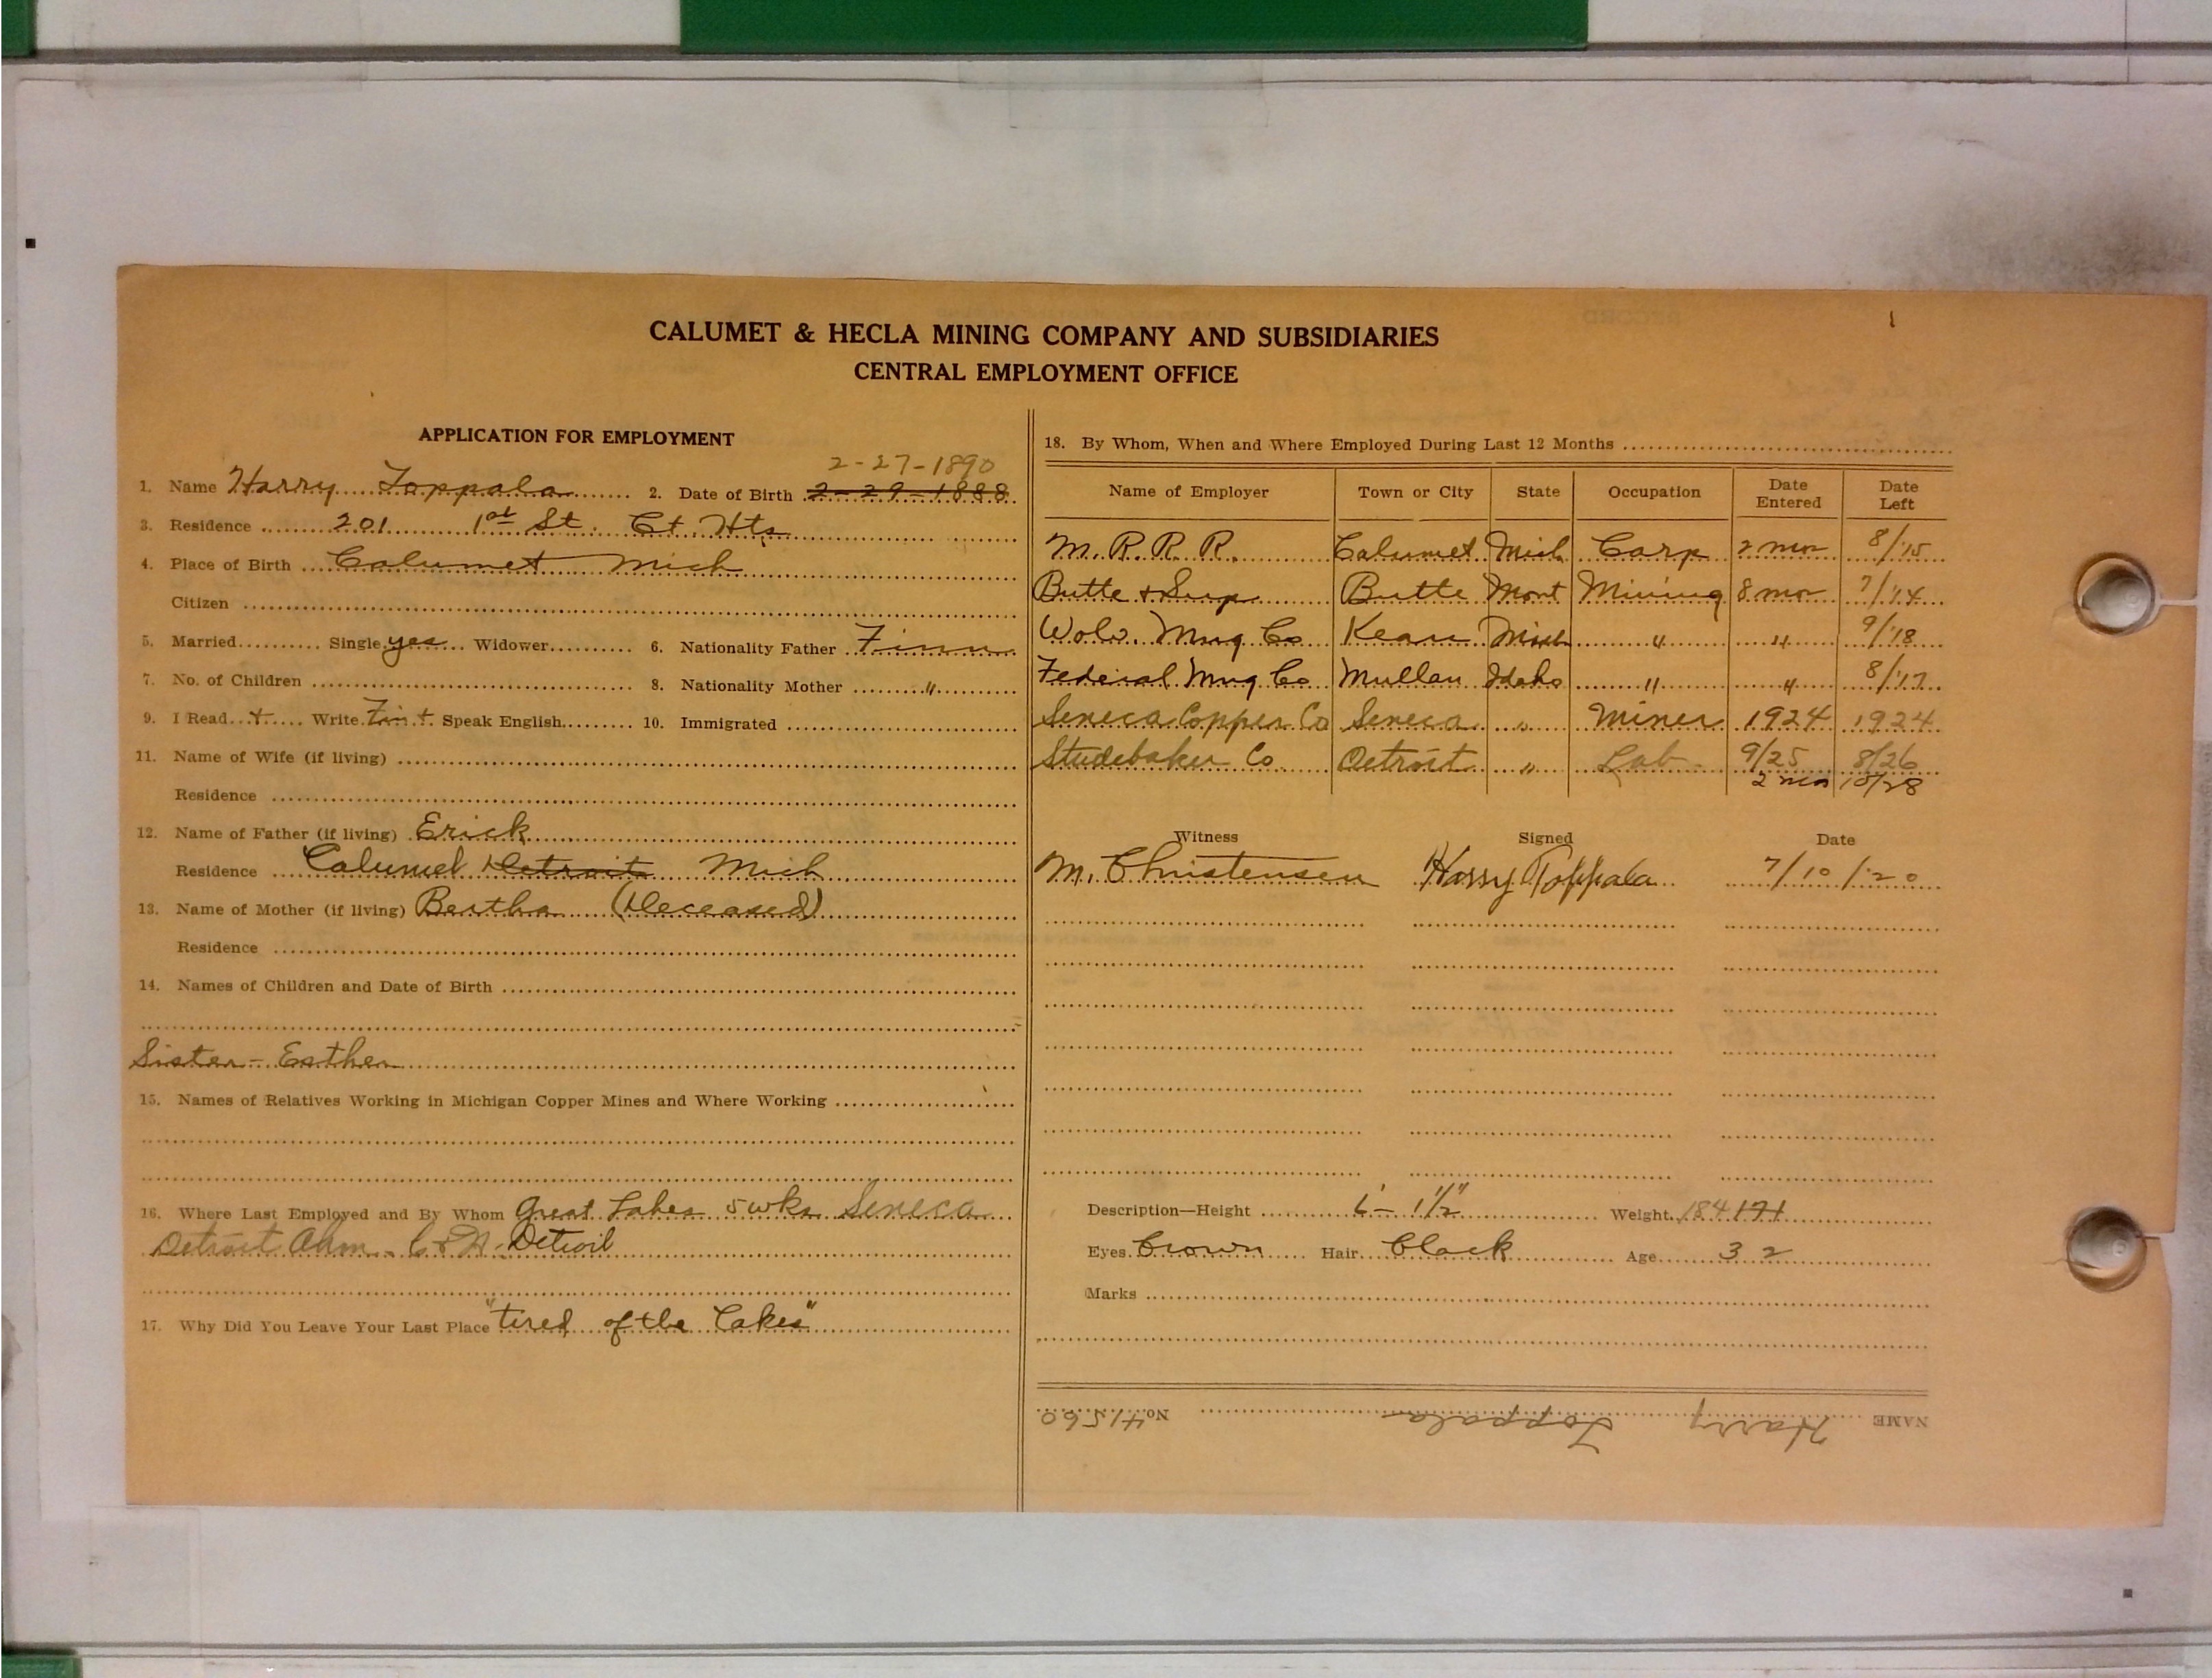 CALUMET & HECLA MINING COMPANY AND SUBSIDIARIES
CENTRAL EMPLOYMENT OFFICE
APPLICATION FOR EMPLOYMENT
2-27-1890
1. Name Harry Toppala 2. Date of Birth 2-29-1888
3. Residence 201 1st St. Ct. Hts
4. Place of Birth Calumet Mich
Citizen
5. Married Single yes Widower 6. Nationality Father Finn
7. No. of Children 8. Nationality Mother "
9. I Read + Write Fin + Speak English 10. Immigrated
11. Name of Wife (if living)
Residence
12. Name of Father (if living) Erick
Residence Calumet Detroit Mich
13. Name of Mother (if living) Bertha (Deceased)
Residence
14. Names of Children and Date of Birth
Sister - Esther
15. Names of Relatives Working in Michigan Copper Mines and Where Working
16. Where Last Employed and By Whom Great Lakes 5 wks Seneca
Detroit Ahm. C & H. Detroit
17. Why Did You Leave Your Last Place "tired of the Lakes"
18. By Whom, When and Where Employed During Last 12 Months
Name of Employer Town or City State Occupation Date Entered Date Left
M. R. R. R. Calumet Mich Carp 2 mos 8/'15
Butte & Sup Butte Mont Mining 8 mos 7/'14
Wolv. Mng Co Kear Mich " " 9/'18
Federal Mng Co Mullan Idaho " " 8/'17
Seneca Copper Co Seneca " Miner 1924 1924
Studebaker Co Detroit " Lab 9/25 8/26
2 mos 10/28
Witness Signed Date
M. Christensen Harry Toppala 7/10/'20
Description—Height 6'- 1½" Weight 184 171
Eyes Brown Hair Black Age 32
Marks
NAME Harry Toppala No. 41560